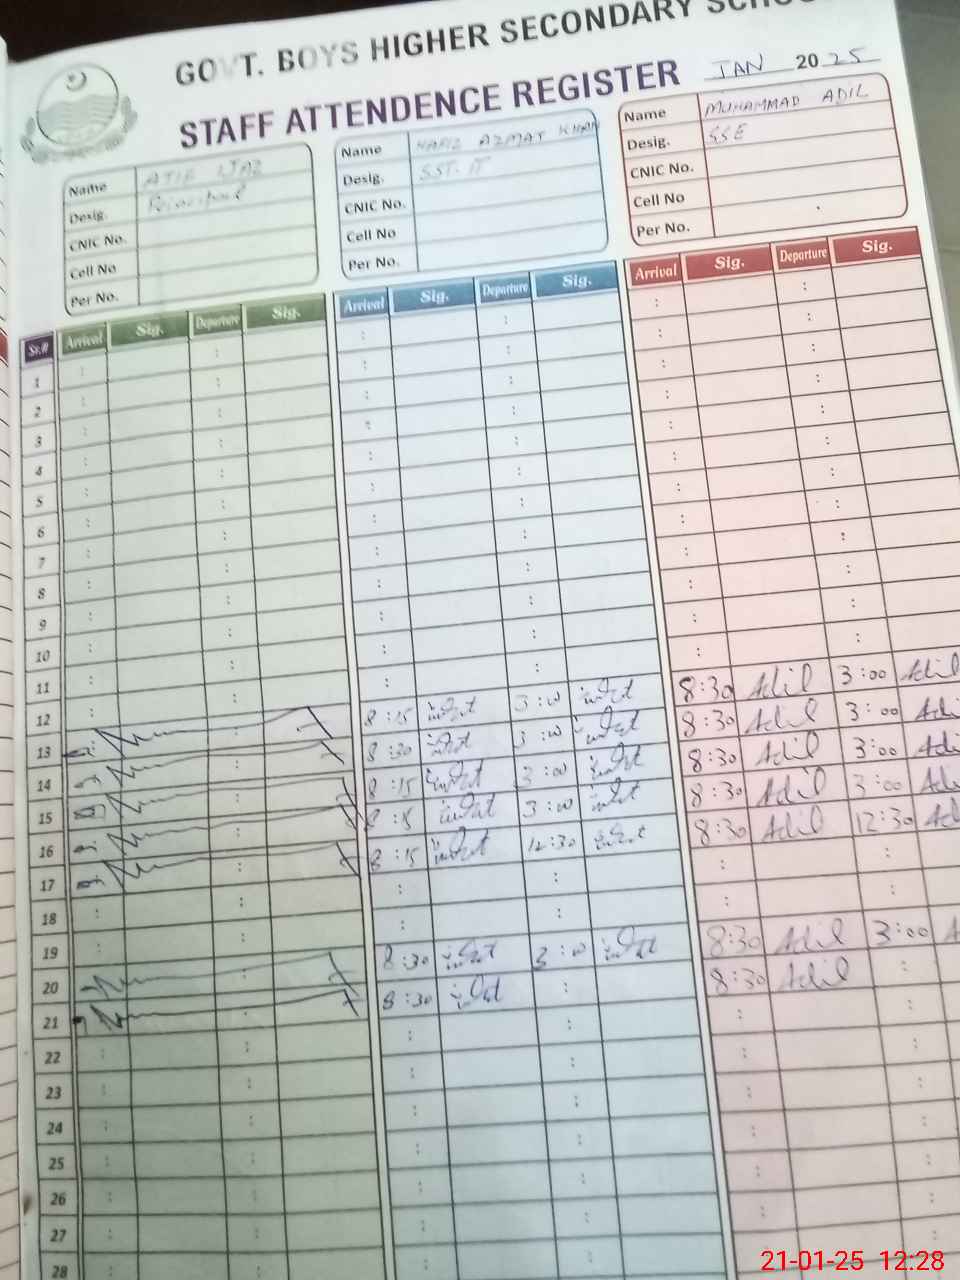 GOVT. BOYS HIGHER SECONDARY
STAFF ATTENDENCE REGISTER JAN 2025
Name ATIF IJAZ
Desig. Principal
CNIC No.
Cell No
Per No.
Name HAFIZ AZMAT KHAN
Desig. SST. IT
CNIC No.
Cell No
Per No.
Name MUHAMMAD ADIL
Desig. SSE
CNIC No.
Cell No
Per No.
Sr.# Arrival Sig. Departure Sig. Arrival Sig. Departure Sig. Arrival Sig. Departure Sig.
1
2
3
4
5
6
7
8
9
10
11
12
13 8:15 3:00 8:30 Adil 3:00 Adil
14 8:30 3:00 8:30 Adil 3:00 Adi
15 8:15 3:00 8:30 Adil 3:00 Adi
16 8:15 3:00 8:30 Adil 3:00 Adi
17 8:15 12:30 8:30 Adil 12:30 Ad
18
19
20 8:30 3:00 8:30 Adil 3:00 A
21 8:30 8:30 Adil
22
23
24
25
26
27
28
21-01-25 12:28